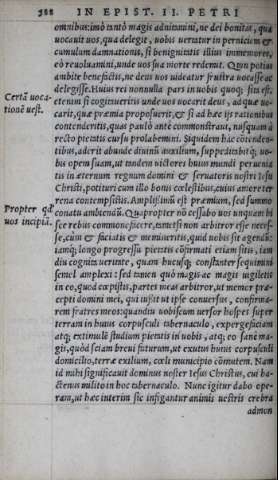 388 IN EPIST. II. PETRI
omnibus: imò tantò magis adnitamini, ne dei bonitas, qua
uocauit uos, qua delegit, uobis uertatur in perniciem &
cumulum damnationis, si benignitatis illius immemores,
eò reuoluamini, unde uos sua morte redemit. Quin potius
ambite benefictis, ne deus uos uideatur frustra uocasse ac
delegisse. Huius rei nonnulla pars in uobis quoq; sita est,
Certã uoca-
etenim si cogitaueritis unde uos uocarit deus, ad quæ uo-
tionẽ uest.
carit, quæ præmia proposuerit, & si ad hæc ijs rationibus
contenderitis, quas paulò antè commonstraui, nusquam à
recto pietatis cursu prolabemini. Siquidem hâc cõtenden-
tibus, aderit abunde diuinũ auxilium, suppeditabitq; uo-
bis opem suam, ut tandem uictores huius mundi perueniatis
in æternum regnum domini & seruatoris nostri Iesu
Christi, potituri cum illo bonis cœlestibus, cuius amore ter
rena contempsistis. Amplissimũ est præmium, sed summo
Propter qd
conatu ambiendũ. Quapropter nõ cessabo uos unquam his
uos incipiã.
sce rebus commonefacere, tametsi non arbitror esse necesse,
cùm & sciatis & memineritis, quid uobis sit agendũ:
iamq; longo progressu pietatis cõfirmati etiam sitis, iam
diu cognita ueritate, quam hucusq; constanter sequimini
semel amplexi: sed tamen quò magis ac magis uigiletis
in eo, quod cœpistis, partes meas arbitror, ut memor præ-
cepti domini mei, qui iussit ut ipse conuersus, confirma-
rem fratres meos: quandiu uobiscum uersor hospes super
terram in huius corpusculi tabernaculo, expergefaciam
atq; extimulẽ studium pietatis in uobis, atq; eo sanè ma-
gis, quòd sciam breui futurum, ut exutus huius corpusculi
domicilio, terræ exilium, cœli municipio cõmutem. Nam
id mihi significauit dominus noster Iesus Christus, cui ha-
ctenus milito in hoc tabernaculo. Nunc igitur dabo ope-
ram, ut hæc interim sic infigantur animis uestris crebra
admon